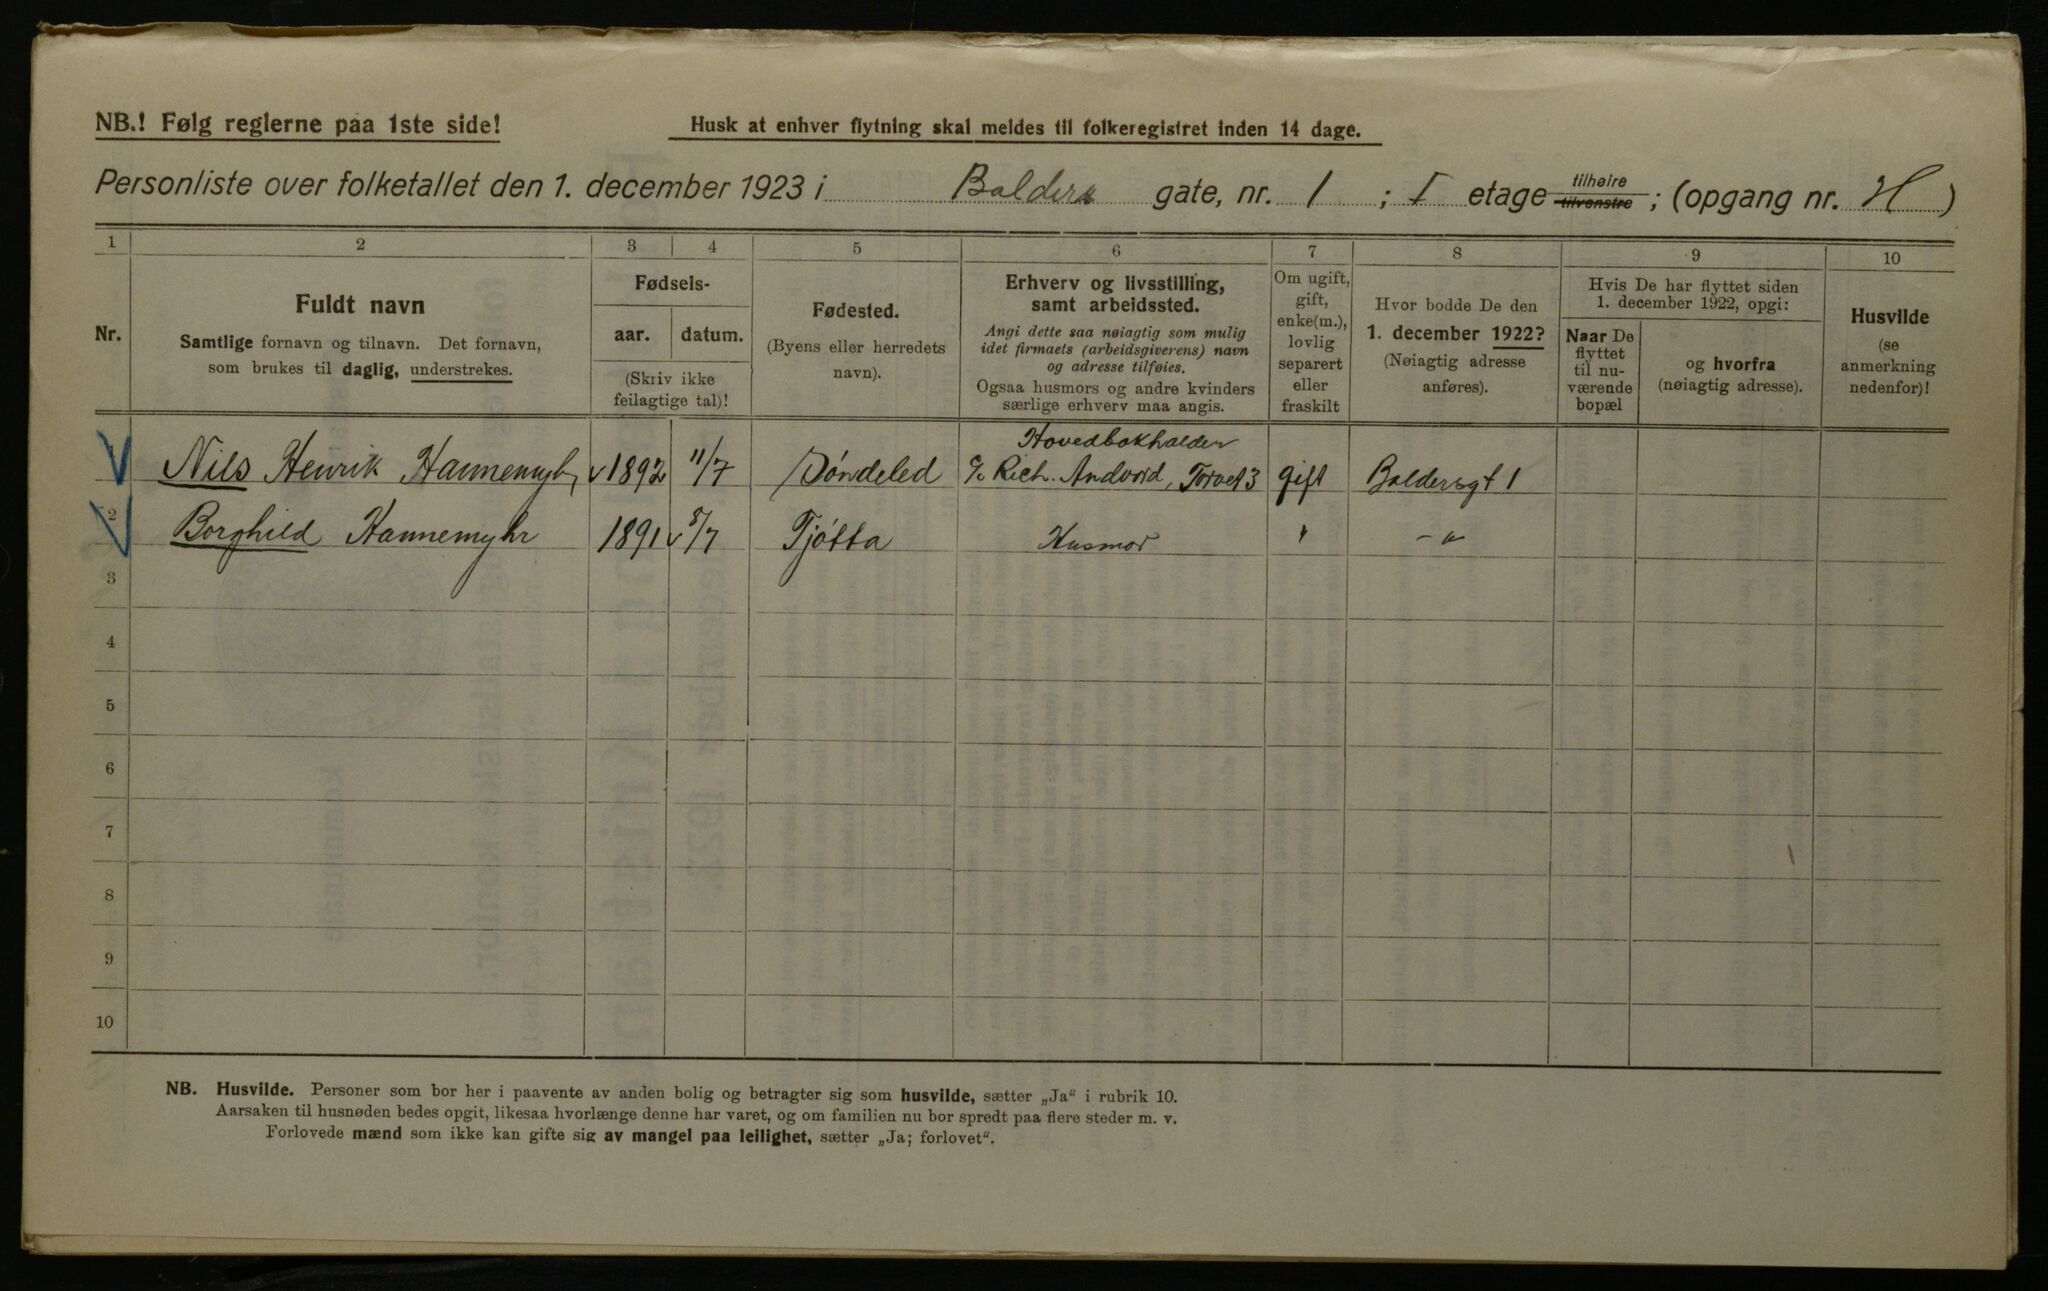 NB.! Følg reglerne paa 1ste side!
Husk at enhver flytning skal meldes til folkeregistret inden 14 dage.
Personliste over folketallet den 1. december 1923 i Balders gate, nr. 1 ; I etage tilhøire tilvenstre ; (opgang nr. H )
1 2 3 4 5 6 7 8 9 10
Nr.
Fuldt navn
Samtlige fornavn og tilnavn. Det fornavn,
som brukes til daglig, understrekes.
Fødsels-
aar. datum.
(Skriv ikke
feilagtige tal)!
Fødested.
(Byens eller herredets
navn).
Erhverv og livsstilling,
samt arbeidssted.
Angi dette saa nøiagtig som mulig
idet firmaets (arbeidsgiverens) navn
og adresse tilføies.
Ogsaa husmors og andre kvinders
særlige erhverv maa angis.
Om ugift,
gift,
enke(m.),
lovlig
separert
eller
fraskilt
Hvor bodde De den
1. december 1922?
(Nøiagtig adresse
anføres).
Hvis De har flyttet siden
1. december 1922, opgi:
Naar De
flyttet
til nu-
værende
bopæl
og hvorfra
(nøiagtig adresse).
Husvilde
(se
anmerkning
nedenfor)!
Hovedbokholder
Nils Henrik Hannemyhr 1892 11/7 Søndeled c/o Rich. Andvord, Torvet 3 gift Baldersgt 1
2 Borghild Hannemyhr 1891 8/7 Tjøtta Husmor " - " -
3
4
5
6
7
8
9
10
NB. Husvilde. Personer som bor her i paavente av anden bolig og betragter sig som husvilde, sætter „Ja" i rubrik 10.
Aarsaken til husnøden bedes opgit, likesaa hvorlænge denne har varet, og om familien nu bor spredt paa flere steder m. v.
Forlovede mænd som ikke kan gifte sig av mangel paa leilighet, sætter „Ja; forlovet".